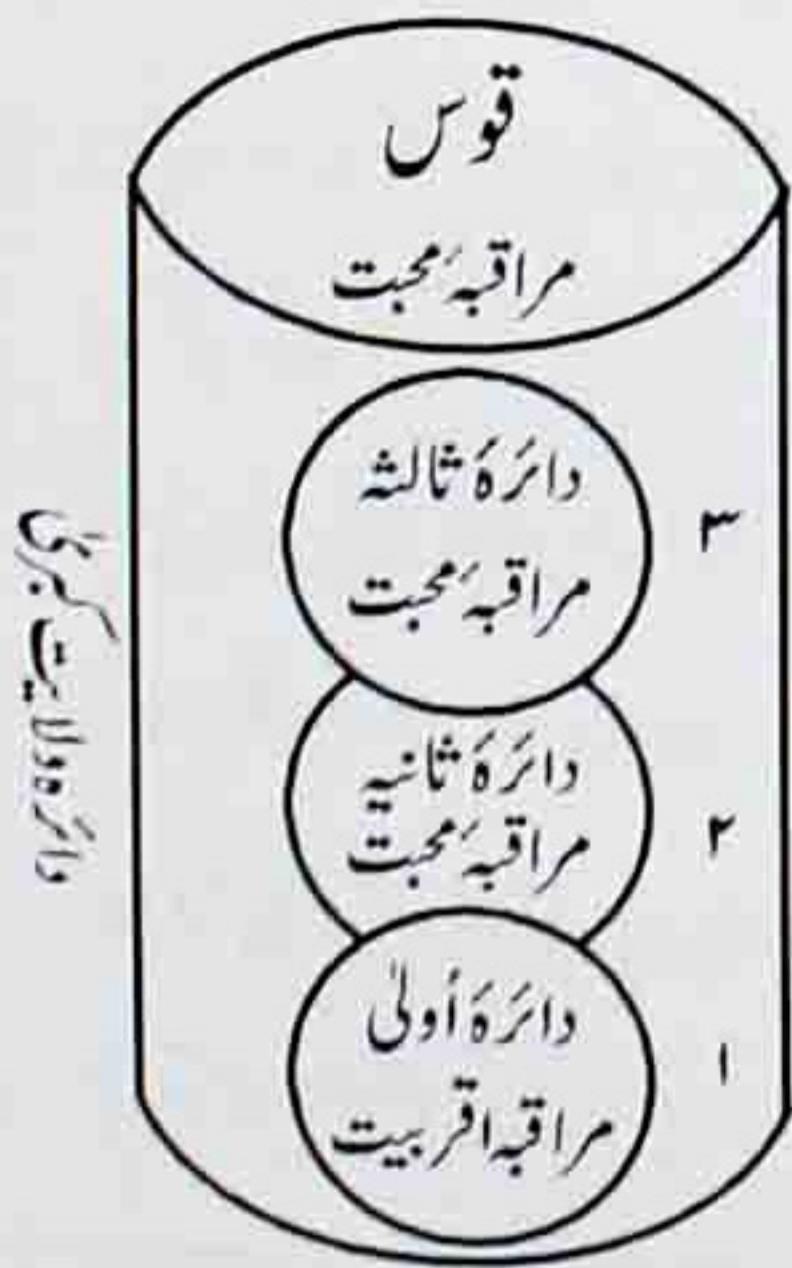 قوس
مراقبۂ محبت
دائرۂ ثالثہ
مراقبۂ محبت
۳
دائرۂ ثانیہ
مراقبۂ محبت
۲
دائرۂ أولیٰ
مراقبہ اقربیت
۱
دائرہ ولایت کبریٰ